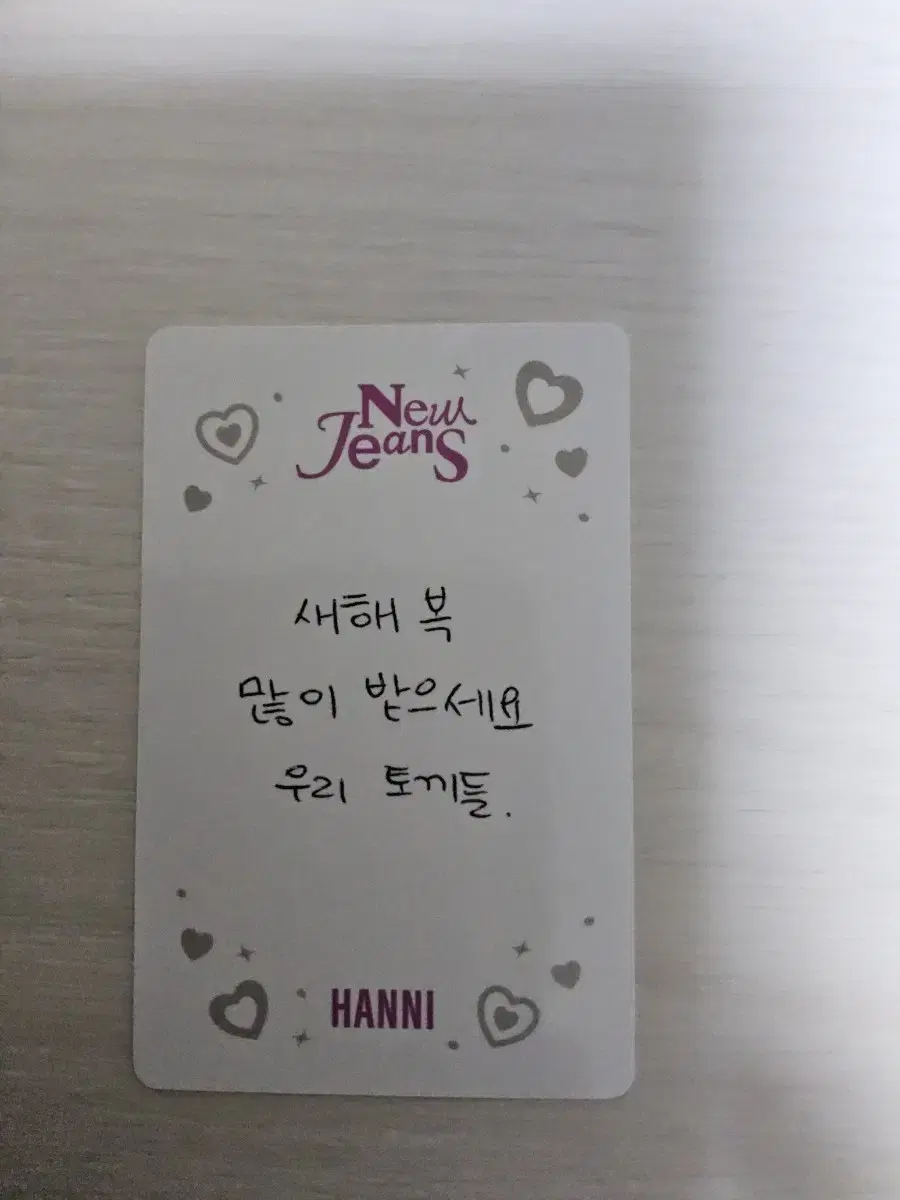 New
Jeans
새해 복
많이 받으세요
우리 토끼들.
HANNI